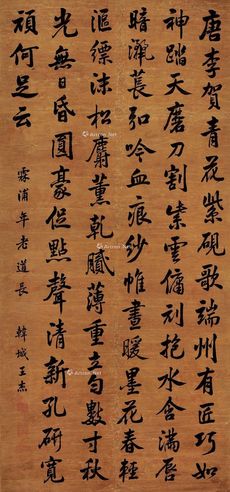 唐李賀青花紫硯歌端州有匠巧如
神踏天磨刀割紫雲傭刓抱水含滿唇
暗灑萇弘吟血痕紗帷晝暖墨花春輕
漚縹沫松麝薰乾膩薄重立勻數寸秋
光無日昏圓豪促點聲清新孔研寬
頑何足云
霖浦年老道長 韓城王杰